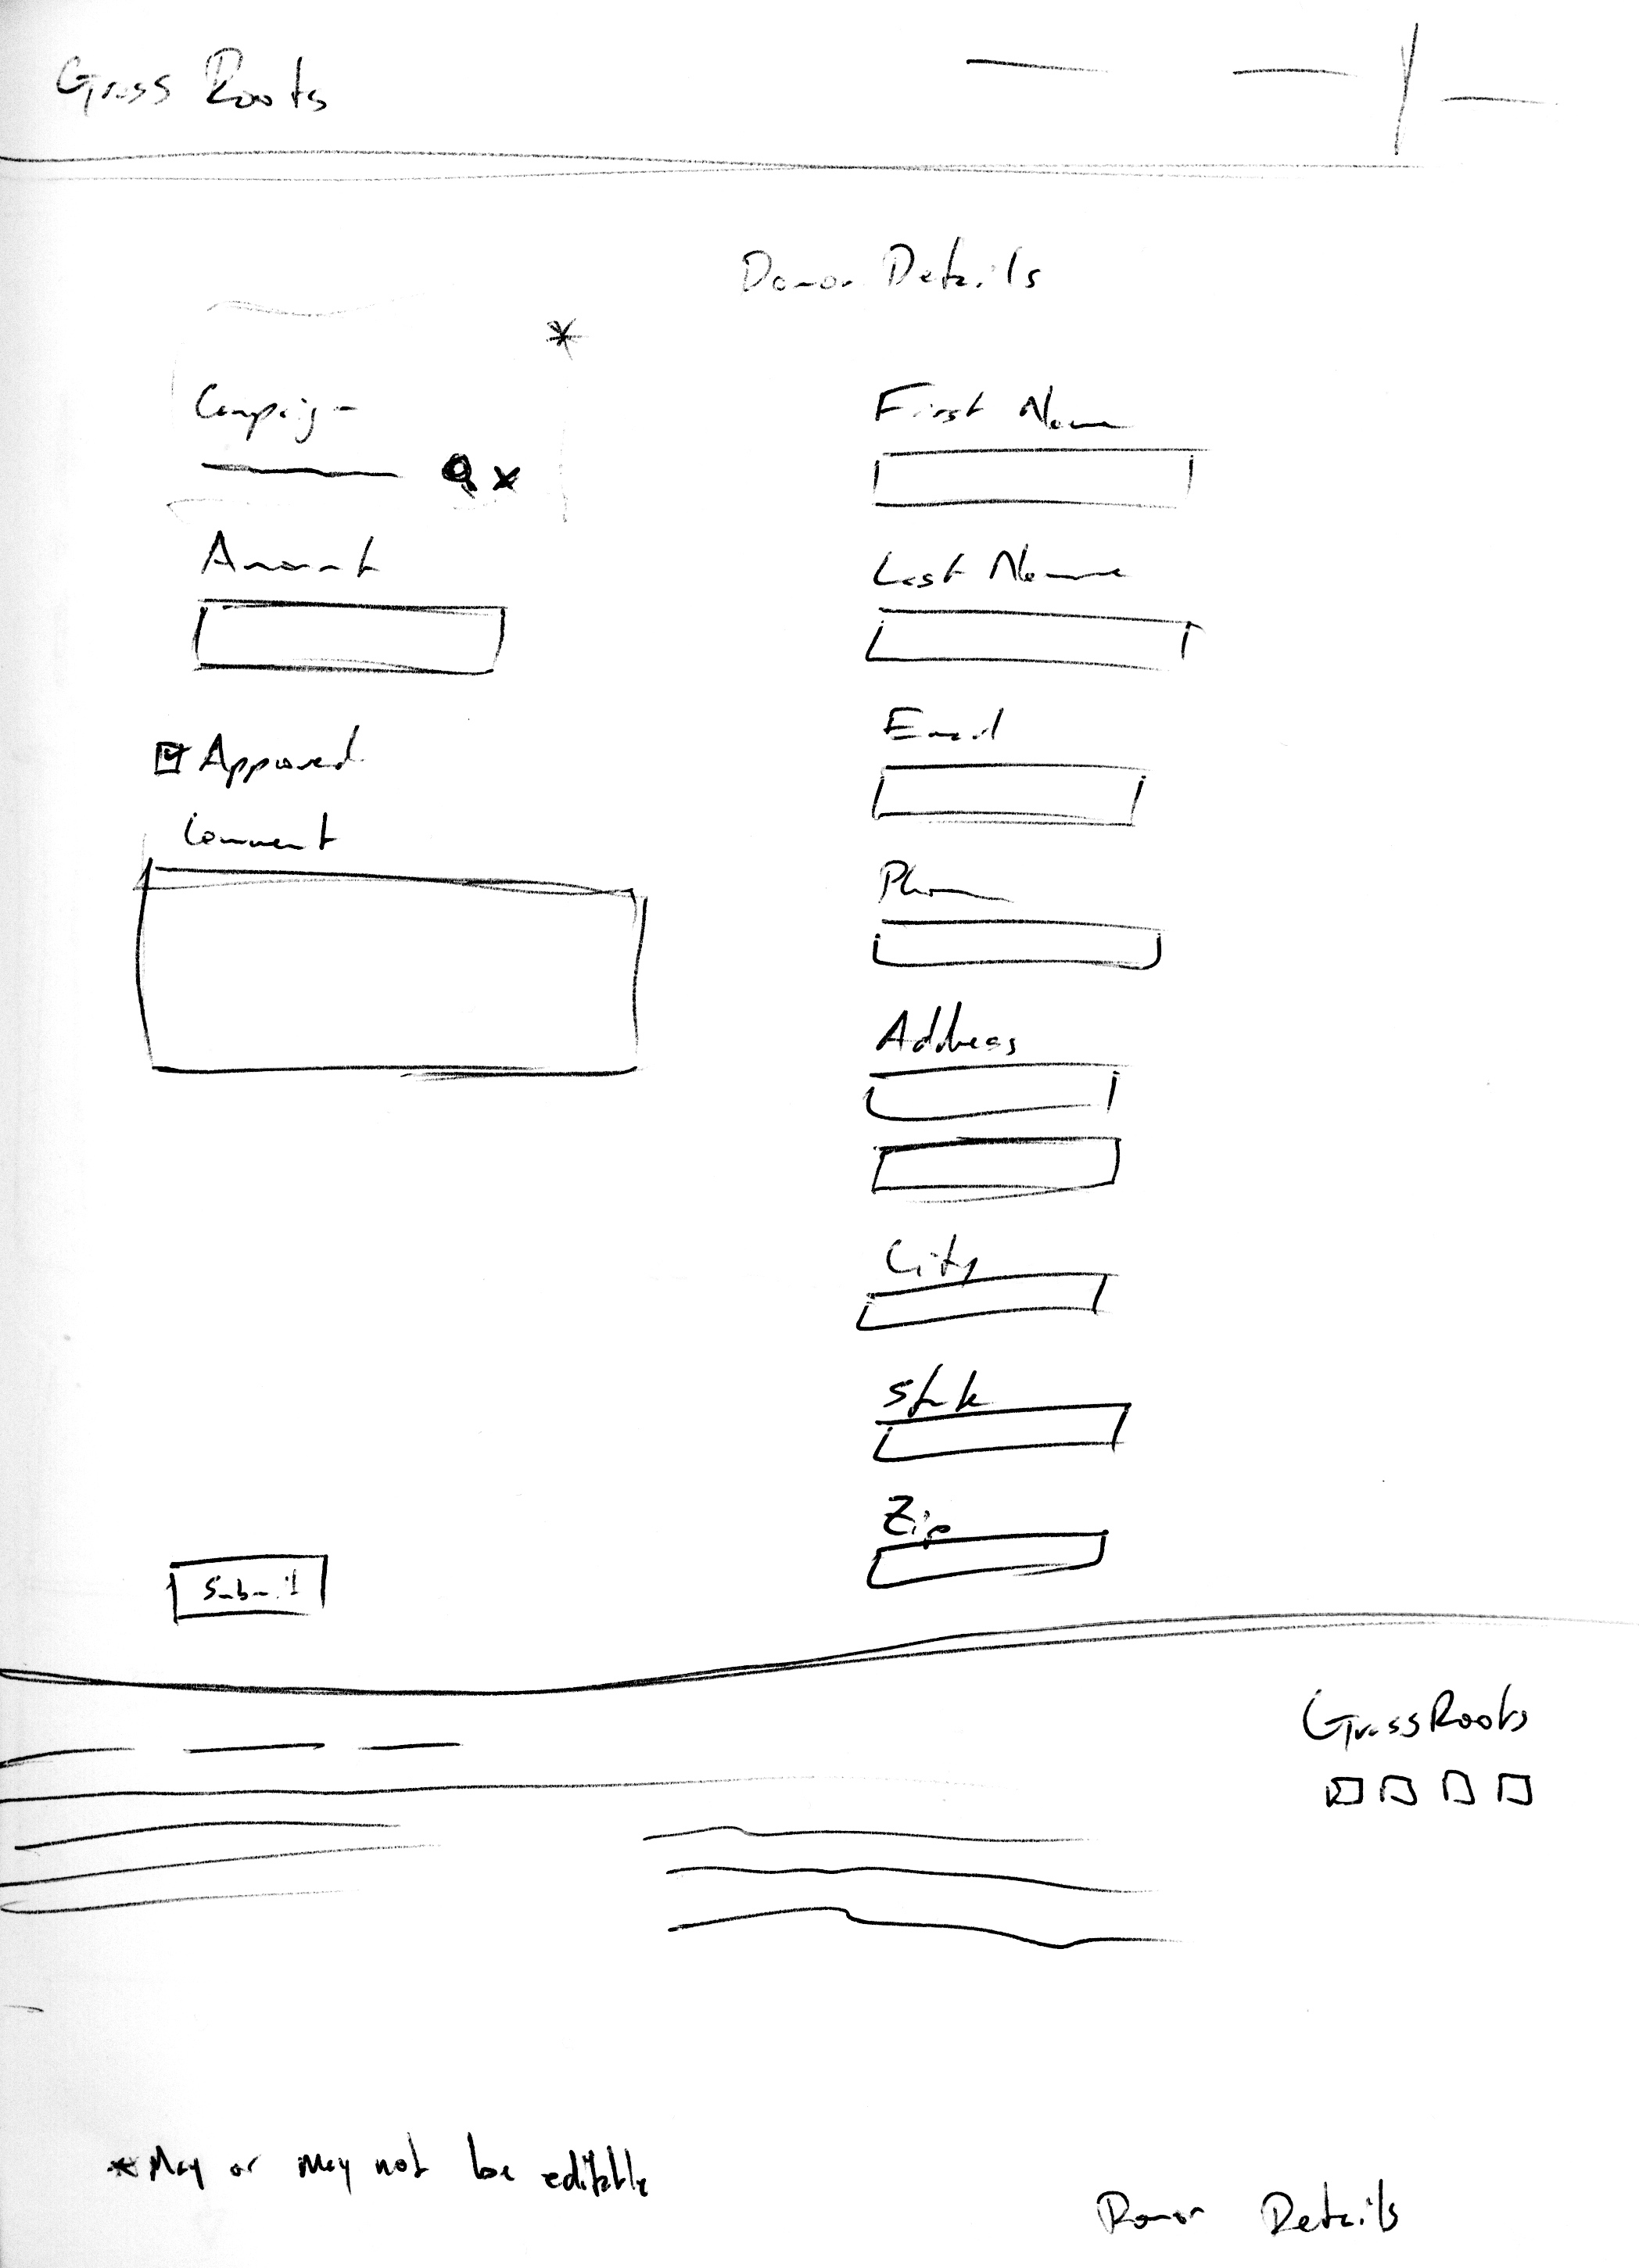 Grass Roots
Donor Details
*
Campaign
Amount
Approved
Comment
Submit
First Name
Last Name
Email
Phone
Address
City
State
Zip
GrassRoots
*May or may not be editable
Donor Details